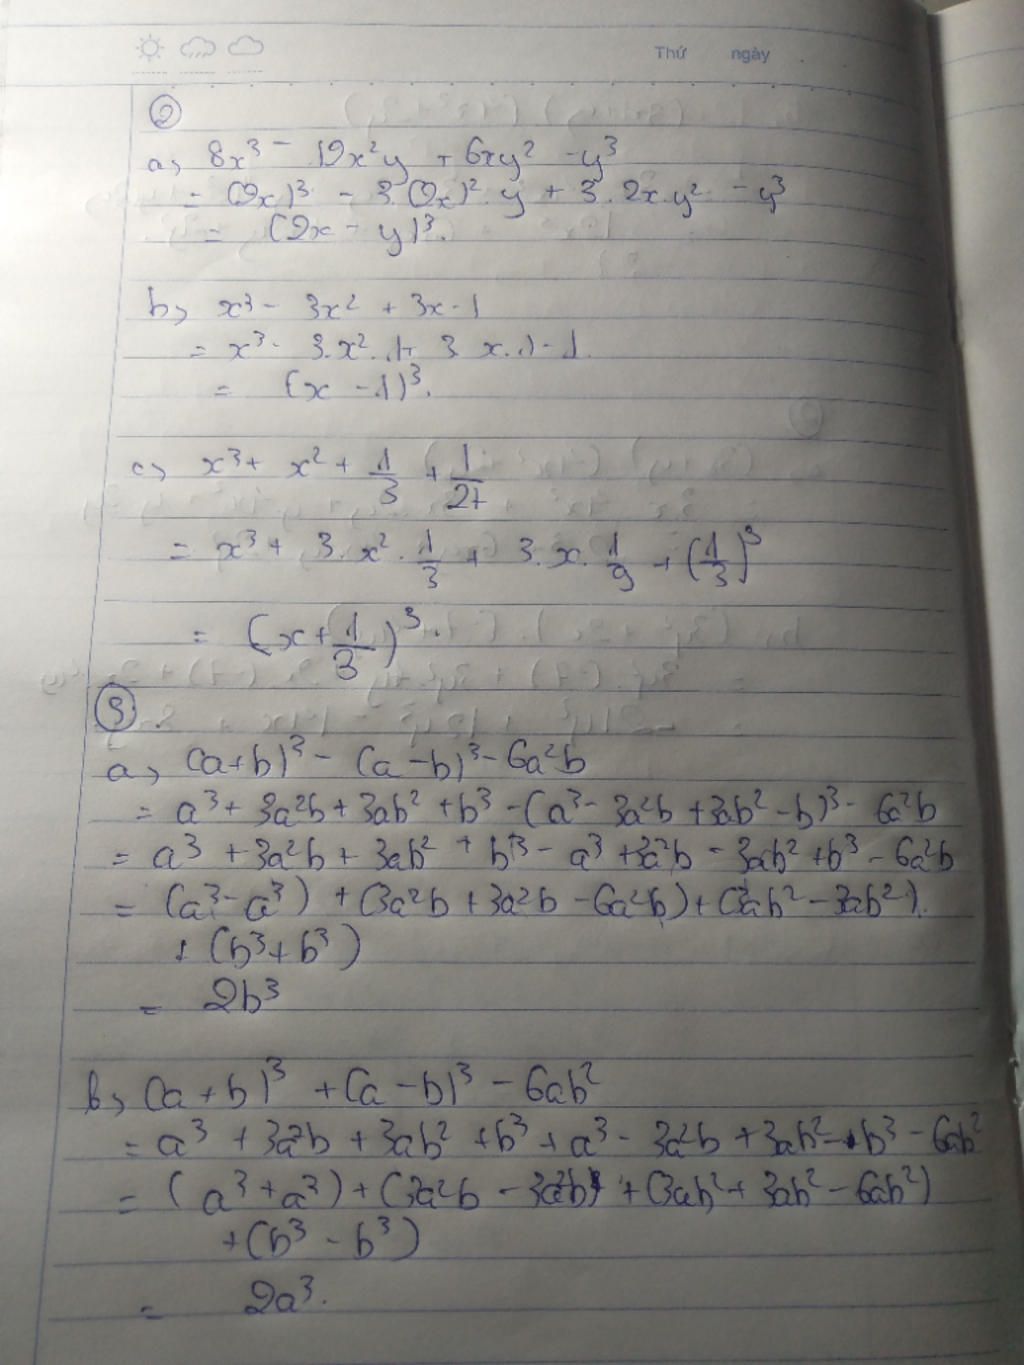 Thứ ngày
②
a, 8x³ - 12x²y + 6xy² - y³
= (2x)³ - 3.(2x)².y + 3.2x.y² - y³
= (2x - y)³.
b, x³ - 3x² + 3x - 1
= x³ - 3.x².1 + 3.x.1 - 1
= (x - 1)³.
c, x³ + x² + 1/3 + 1/27
= x³ + 3.x².1/3 + 3.x.1/9 + (1/3)³
= (x + 1/3)³.
③.
a, (a+b)³ - (a-b)³ - 6a²b
= a³ + 3a²b + 3ab² + b³ - (a³ - 3a²b + 3ab² - b)³ - 6a²b
= a³ + 3a²b + 3ab² + b³ - a³ + 3a²b - 3ab² + b³ - 6a²b
= (a³ - a³) + (3a²b + 3a²b - 6a²b) + (3ab² - 3ab²)
+ (b³ + b³)
= 2b³
b, (a+b)³ + (a-b)³ - 6ab²
= a³ + 3a²b + 3ab² + b³ + a³ - 3a²b + 3ab² - b³ - 6ab²
= (a³ + a³) + (3a²b - 3a²b) + (3ab² + 3ab² - 6ab²)
+ (b³ - b³)
= 2a³.